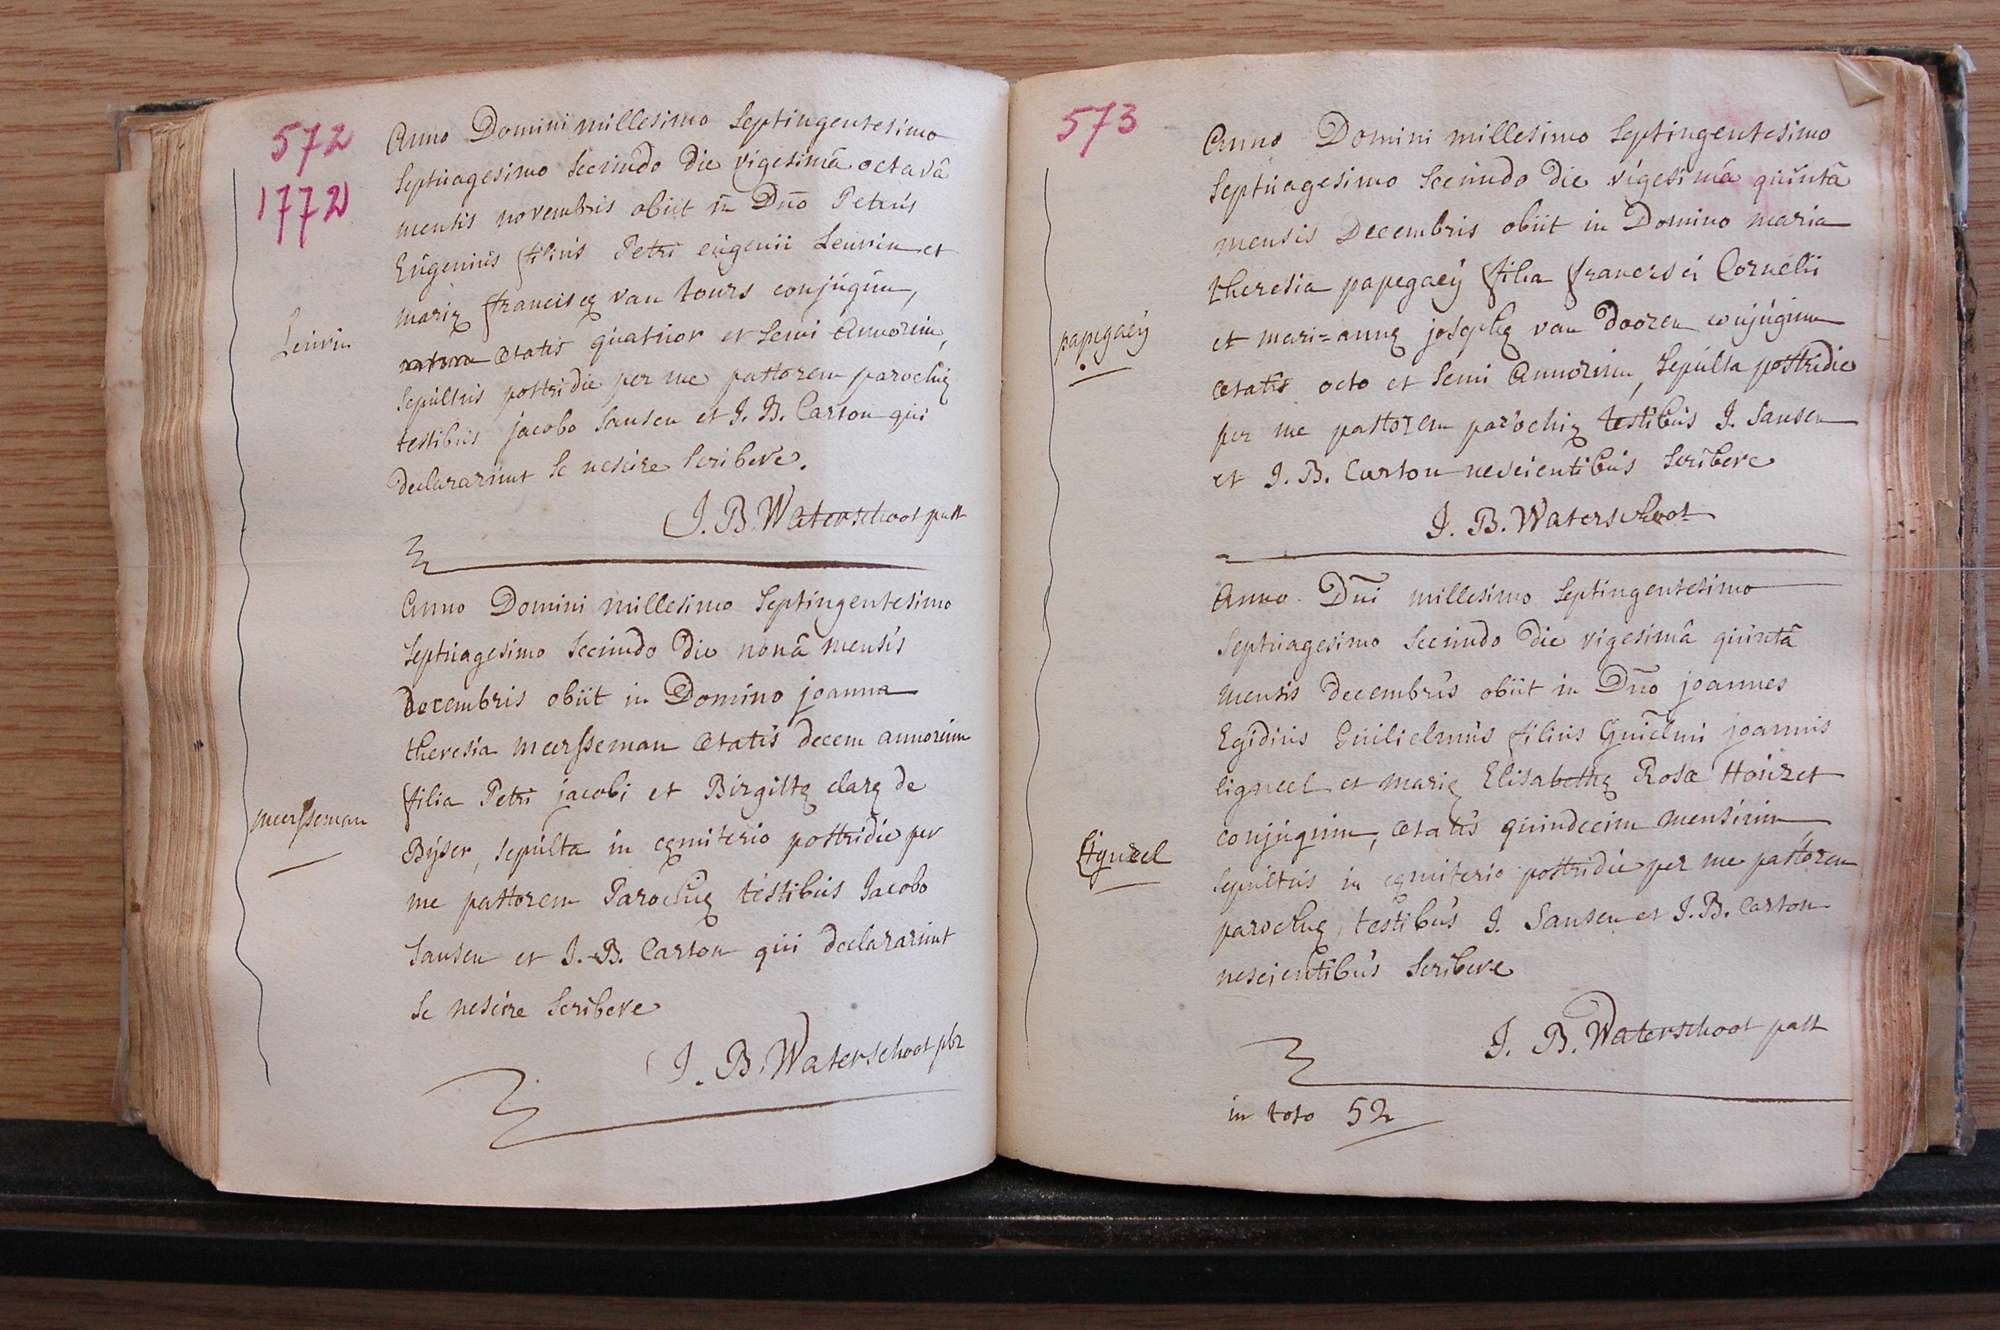 572
1772
Anno Domini millesimo Septingentesimo
Septuagesimo Secundo die vigesimâ octavâ
mensis novembris obiit in Dno Petrus
Eugenius filius Petri eugenii Leuvin et
mariæ franciscæ van tours conjugum,
Leuvin
ætatis quatuor et Semi Annorum,
Sepultus postridie per me pastorem parochiæ
testibus jacobo Jansen et J. B. Carton qui
declararunt Se nescire Scribere.
J. B. Waterschoot past
Anno Domini millesimo Septingentesimo
Septuagesimo Secundo die nonâ mensis
Decembris obiit in Domino joanna
theresia meersseman ætatis decem annorum
filia Petri jacobi et Birgittæ claræ de
meersseman
Büser, sepulta in cœmiterio postridie per
me pastorem Parochiæ testibus Jacobo
Jansen et J. B. Carton qui declararunt
Se nescire Scribere
J. B. Waterschoot pbr
573
Anno Domini millesimo Septingentesimo
Septuagesimo Secundo die vigesimâ quintâ
mensis Decembris obiit in Domino maria
theresia papegaeÿ filia francisci Cornelii
papegaeÿ
et mari=annæ josephæ van doozen conjugum
ætatis octo et Semi Annorum, Sepulta postridie
per me pastorem parochiæ testibus J. Jansen
et J. B. Carton nescientibus Scribere
J. B. Waterschoot
Anno Dni millesimo Septingentesimo
Septuagesimo Secundo die vigesimâ quintâ
mensis decembris obiit in Dno joannes
Egidius Guilielmus filius Guielmi joannis
ligneel et mariæ Elisabethæ Rosæ Houzet
conjugum, ætatis quindecim mensium
Ligneel
Sepultus in cœmiterio postridie per me pastorem
parochiæ, testibus J. Jansen et J. B. Carton
nescientibus Scribere
J. B. Waterschoot past
in toto 52